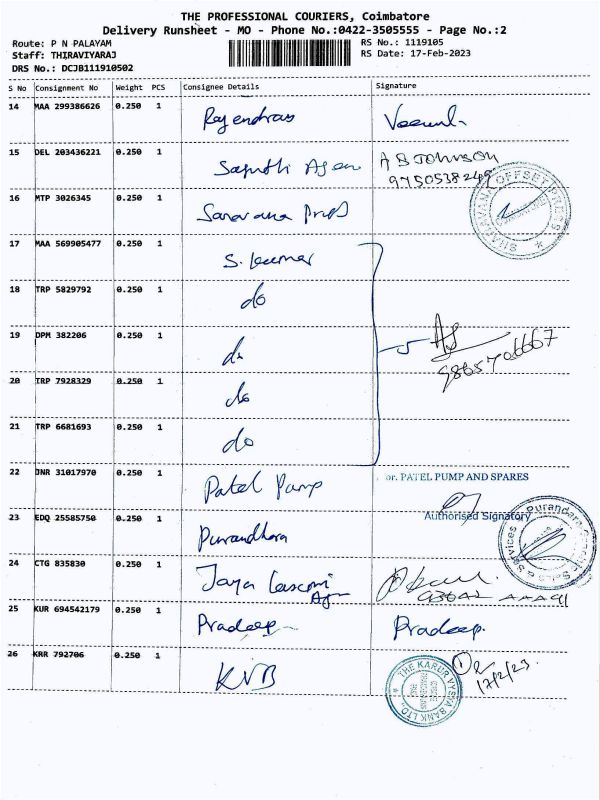 THE PROFESSIONAL COURIERS, Coimbatore
Delivery Runsheet - MO - Phone No.:0422-3505555 - Page No.:2
Route: P N PALAYAM
RS No.: 1119105
Staff: THIRAVIYARAJ
RS Date: 17-Feb-2023
DRS No.: DCJB111910502
S No Consignment No Weight PCS Consignee Details Signature
14 MAA 299386626 0.250 1 Rajendran
15 DEL 203436221 0.250 1 A B Johnson
9750538249
16 MTP 3026345 0.250 1 Saravana
SARAVANA OFFSET PRESS
17 MAA 569905477 0.250 1 S. Kumar
18 TRP 5829792 0.250 1 do
19 DPM 382206 0.250 1 do
9865706667
20 TRP 7928329 0.250 1 do
21 TRP 6681693 0.250 1 do
22 JNR 31017970 0.250 1 Patel Pump
or. PATEL PUMP AND SPARES
Authorised Signatory
23 EDQ 25585750 0.250 1 Purandhara
24 CTG 835830 0.250 1 Jaya
25 KUR 694542179 0.250 1 Pradeep Pradeep.
26 KRR 792706 0.250 1 KVB
17/2/23.
THE KARUR VYSYA BANK LTD.